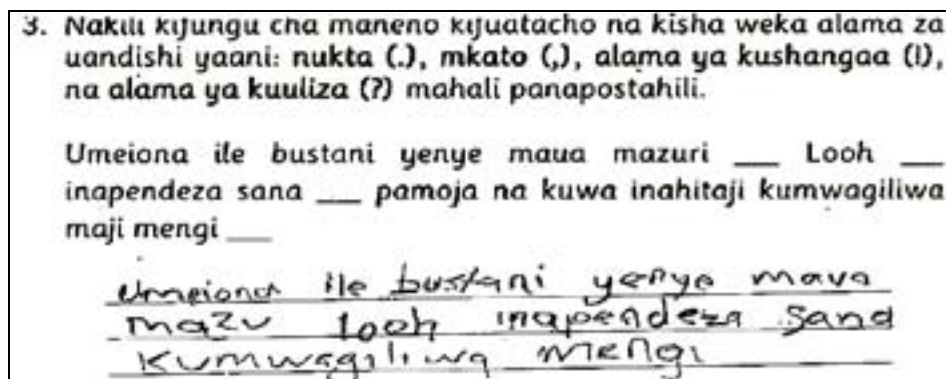 3. Nakili kifungu cha maneno kifuatacho na kisha weka alama za
uandishi yaani: nukta (.), mkato (,), alama ya kushangaa (!),
na alama ya kuuliza (?) mahali panapostahili.
Umeiona ile bustani yenye maua mazuri ___ Looh ___
inapendeza sana ___ pamoja na kuwa inahitaji kumwagiliwa
maji mengi ___
Umeiona ile bustani yenye maua
mazu looh inapendeza sana
kumwagiliwa mengi